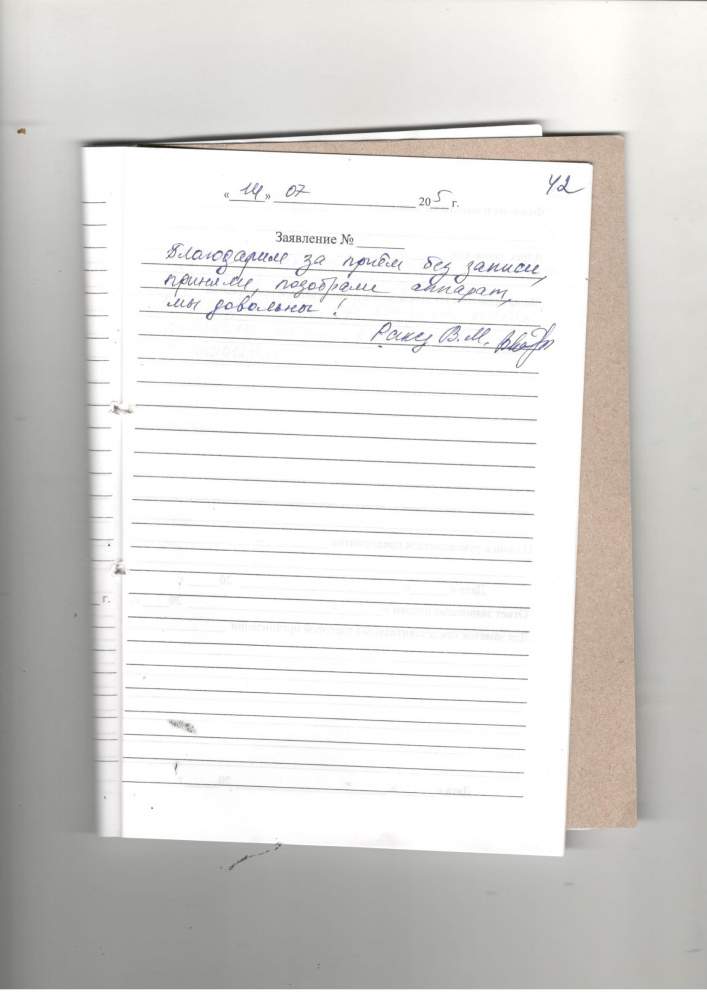 42
«14» 07 205 г.
Заявление №
Благодарим за приём без записи,
приняли, подобрали аппарат,
мы довольны!
В.М.
г.